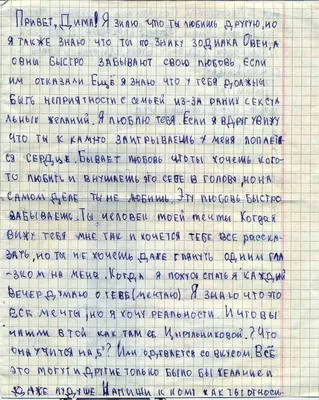 Привет, Дима! Я знаю что ты любишь другую, но
я также знаю что ты по знаку зодиака Овен, а
овны быстро забывают свою любовь если
им отказали Ещё я знаю что у тебя должны
быть неприятности с семьей из-за ранних сексуа-
льных желаний. Я люблю тебя. Если я вдруг увижу
что ты к кому заигрываешь у меня лопает-
ся сердце. Бывает любовь что ты хочешь кого-
то любить и внушаешь это себе в голову, но на
самом деле ты не любишь. Эту любовь быстро
забываешь. Ты, человек моей мечты. Когда я
вижу тебя мне так и хочется тебе все расска-
зать, но ты не хочешь даже глянуть одним гла-
-зком на меня. Когда я ложусь спать я каждый
вечер думаю о тебе (мечтаю). Я знаю что это
все мечты, но я хочу реальности. И что вы
нашли в той как там её Цирульниковой? Что
она учится на 5? Или одевается со вкусом. Всё
это могут и другие только было бы желание и
даже лучше Напиши к кому как ты относи-